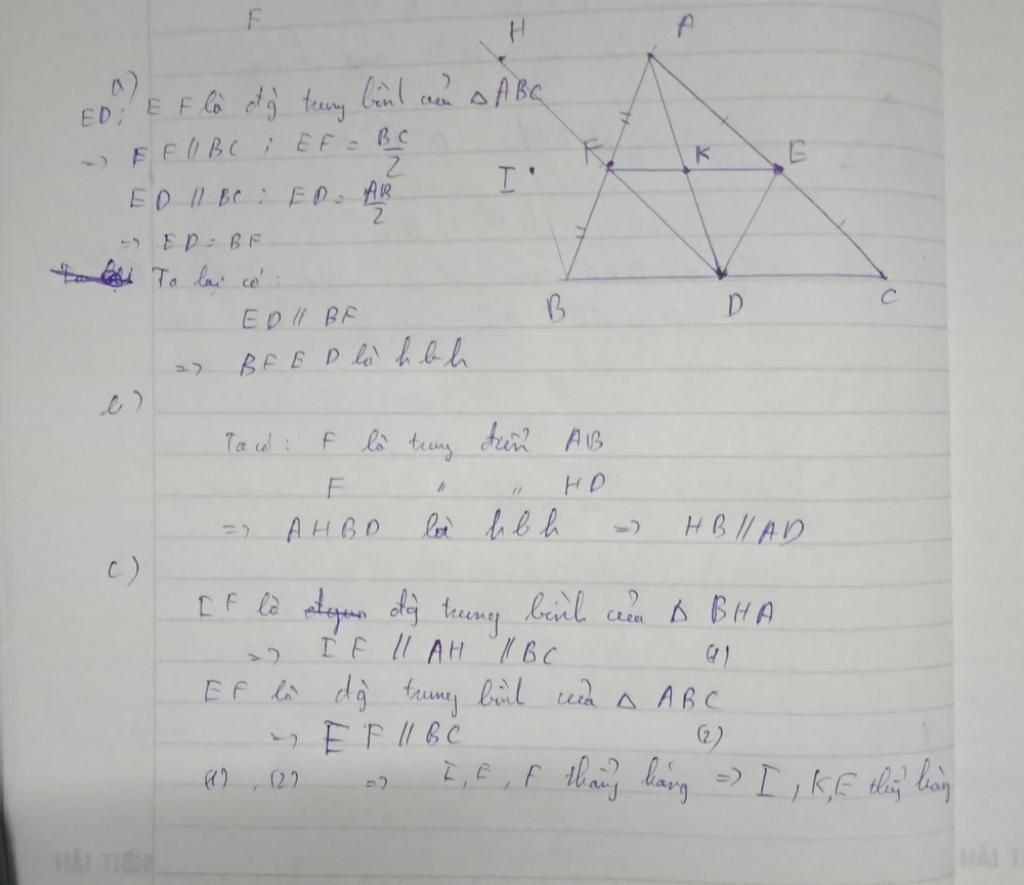 F
a)
ED; EF là đg trung bình của △ ABC
=> EF // BC ; EF = BC/2
ED // BC ; ED = AB/2
=> ED = BF
Ta lại có :
ED // BF
=> BFED là hbh
b)
Ta có : F là trung điểm AB
F " " HD
=> AHBD là hbh => HB // AD
c)
IF là đg trung bình của △ BHA
=> IF // AH // BC (1)
EF là đg trung bình của △ ABC
=> EF // BC (2)
(1) , (2) => I, E, F thẳng hàng => I, K, E thẳng hàng
H
A
F
K
E
I
B
D
C
HẢI TIẾN
HẢI T